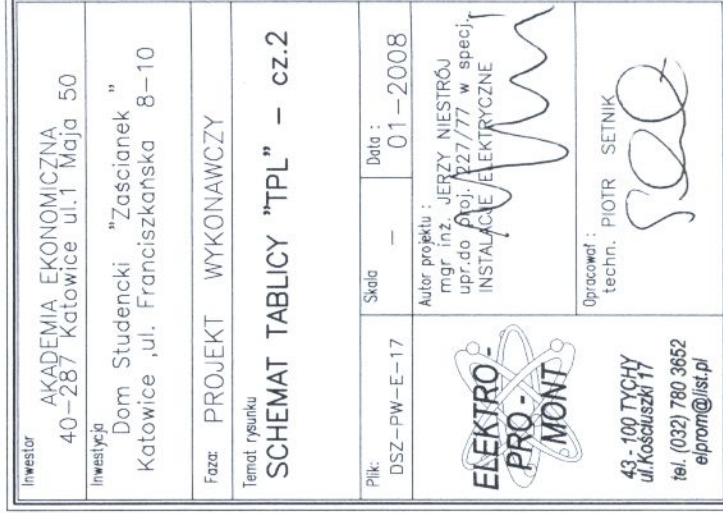 Inwestor
AKADEMIA EKONOMICZNA
40-287 Katowice ul.1 Maja 50
Inwestycja
Dom Studencki "Zaścianek"
Katowice ,ul. Franciszkańska 8-10
Faza: PROJEKT WYKONAWCZY
Temat rysunku
SCHEMAT TABLICY "TPL" - cz.2
Plik:
DSZ-PW-E-17
Skala
-
Data :
01-2008
ELEKTRO-
PRO-
MONT
43 - 100 TYCHY
ul.Kościuszki 17
tel. (032) 780 3652
elprom@list.pl
Autor projektu :
mgr inż. JERZY NIESTRÓJ
upr.do proj. 227/77 w specj.
INSTALACJE ELEKTRYCZNE
Opracował :
techn. PIOTR SETNIK